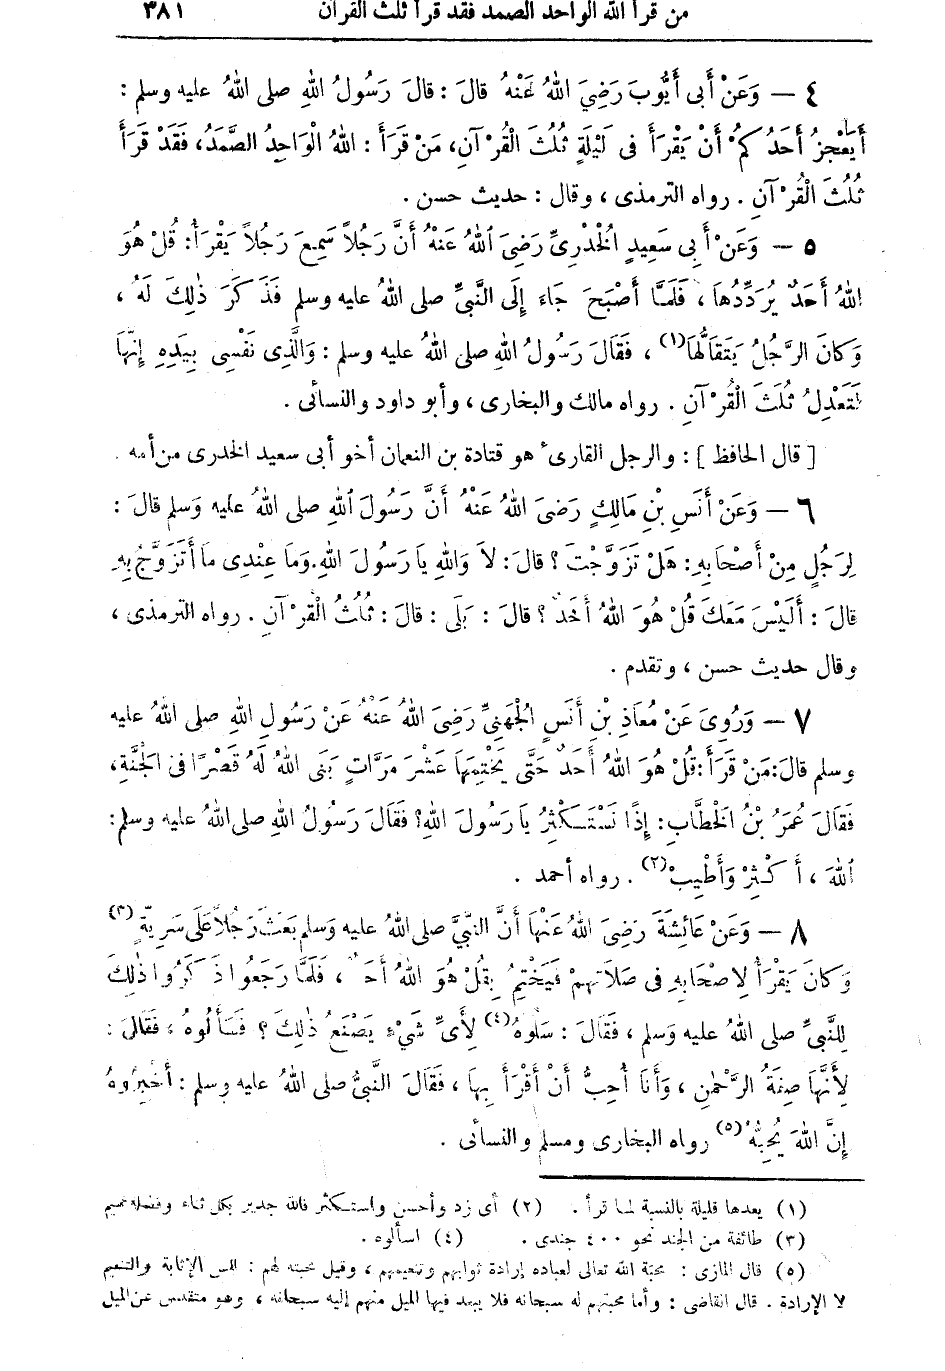 من قرأ الله الواحد الصمد فقد قرأ ثلث القرآن ٣٨١
٤ — وَعَنْ أَبِى أَيُّوبَ رَضِيَ اللهُ عَنْهُ قَالَ : قَالَ رَسُولُ اللهِ صلى اللهُ عليه وسلم :
أَيَعْجِزُ أَحَدُكُمْ أَنْ يَقْرَأَ فِى لَيْلَةٍ ثُلُثَ الْقُرْآنِ، مَنْ قَرَأَ : اللهُ الْوَاحِدُ الصَّمَدُ، فَقَدْ قَرَأَ
ثُلُثَ الْقُرْآنِ . رواه الترمذى ، وقال : حديث حسن .
٥ — وَعَنْ أَبِى سَعِيدٍ الْخُدْرِىِّ رَضِىَ اللهُ عَنْهُ أَنَّ رَجُلاً سَمِعَ رَجُلاً يَقْرَأُ: قُلْ هُوَ
اللهُ أَحَدٌ يُرَدِّدُهَا ، فَلَمَّا أَصْبَحَ جَاءَ إِلَى النَّبِىِّ صلى اللهُ عليه وسلم فَذَكَرَ ذٰلِكَ لَهُ ،
وَكَانَ الرَّجُلُ يَتَقَالُّهَا(١) ، فَقَالَ رَسُولُ اللهِ صلى اللهُ عليه وسلم : وَالَّذِى نَفْسِى بِيَدِهِ إِنَّهَا
لَتَعْدِلُ ثُلُثَ الْقُرْآنِ . رواه مالك والبخارى ، وأبو داود والنسائى .
[ قال الحافظ ] : والرجل القارئ هو قتادة بن النعمان أخو أبى سعيد الخدرى من أمه .
٦ — وَعَنْ أَنَسِ بْنِ مَالِكٍ رَضِىَ اللهُ عَنْهُ أَنَّ رَسُولَ اللهِ صلى اللهُ عليه وَسلم قَالَ :
لِرَجُلٍ مِنْ أَصْحَابِهِ : هَلْ تَزَوَّجْتَ ؟ قَالَ : لاَ وَاللهِ يَا رَسُولَ اللهِ. وَمَا عِنْدِى مَا أَتَزَوَّجُ بِهِ
قَالَ : أَلَيْسَ مَعَكَ قُلْ هُوَ اللهُ أَحَدٌ ؟ قَالَ : بَلَى : قَالَ : ثُلُثُ الْقُرْآنِ . رواه الترمذى ،
وقال حديث حسن ، وتقدم .
٧ — وَرُوِىَ عَنْ مُعَاذِ بْنِ أَنَسٍ الْجُهَنِىِّ رَضِىَ اللهُ عَنْهُ عَنْ رَسُولِ اللهِ صلى اللهُ عليه
وسلم قَالَ: مَنْ قَرَأَ : قُلْ هُوَ اللهُ أَحَدٌ حَتَّى يَخْتِمَهَا عَشْرَ مَرَّاتٍ بَنَى اللهُ لَهُ قَصْرًا فِى الْجَنَّةِ،
فَقَالَ عُمَرُ بْنُ الْخَطَّابِ: إِذًا نَسْتَكْثِرُ يَا رَسُولَ اللهِ؟ فَقَالَ رَسُولُ اللهِ صلى اللهُ عليه وسلم:
اللهَ ، أَكْثِرْ وَأَطْيِبْ(٢) . رواه أحمد .
٨ — وَعَنْ عَائِشَةَ رَضِىَ اللهُ عَنْهَا أَنَّ النَّبِىَّ صلى اللهُ عليه وَسلم بَعَثَ رَجُلاً عَلَى سَرِيَّةٍ(٣)
وَكَانَ يَقْرَأُ لأَِصْحَابِهِ فِى صَلاَتِهِمْ فَيَخْتِمُ بِقُلْ هُوَ اللهُ أَحَدٌ ، فَلَمَّا رَجَعُوا ذَكَرُوا ذٰلِكَ
لِلنَّبِىِّ صلى اللهُ عليه وَسلم ، فَقَالَ : سَلُوهُ(٤) لِأَىِّ شَيْءٍ يَصْنَعُ ذٰلِكَ ؟ فَسَأَلُوهُ ، فَقَالَ :
لِأَنَّهَا صِفَةُ الرَّحْمٰنِ ، وَأَنَا أُحِبُّ أَنْ أَقْرَأَ بِهَا ، فَقَالَ النَّبِىُّ صلى اللهُ عليه وسلم : أَخْبِرُوهُ
إِنَّ اللهَ يُحِبُّهُ(٥) رواه البخارى ومسلم والنسائى .
(١) يعدها قليلة بالنسبة لما قرأ . (٢) أى زد وأحسن واستكثر فالله جدير بكل ثناء وفضله عميم
(٣) طائفة من الجند نحو ٤٠٠ جندى . (٤) اسألوه .
(٥) قال المازى : محبة الله تعالى لعباده إرادة ثوابهم وتنعيمهم ، وقيل محبته لهم : نفس الإثابة والتنعيم
لا الإرادة . قال القاضى : وأما محبتهم له سبحانه فلا يبعد فيها الميل منهم إليه سبحانه ، وهو متقدس عن الميل